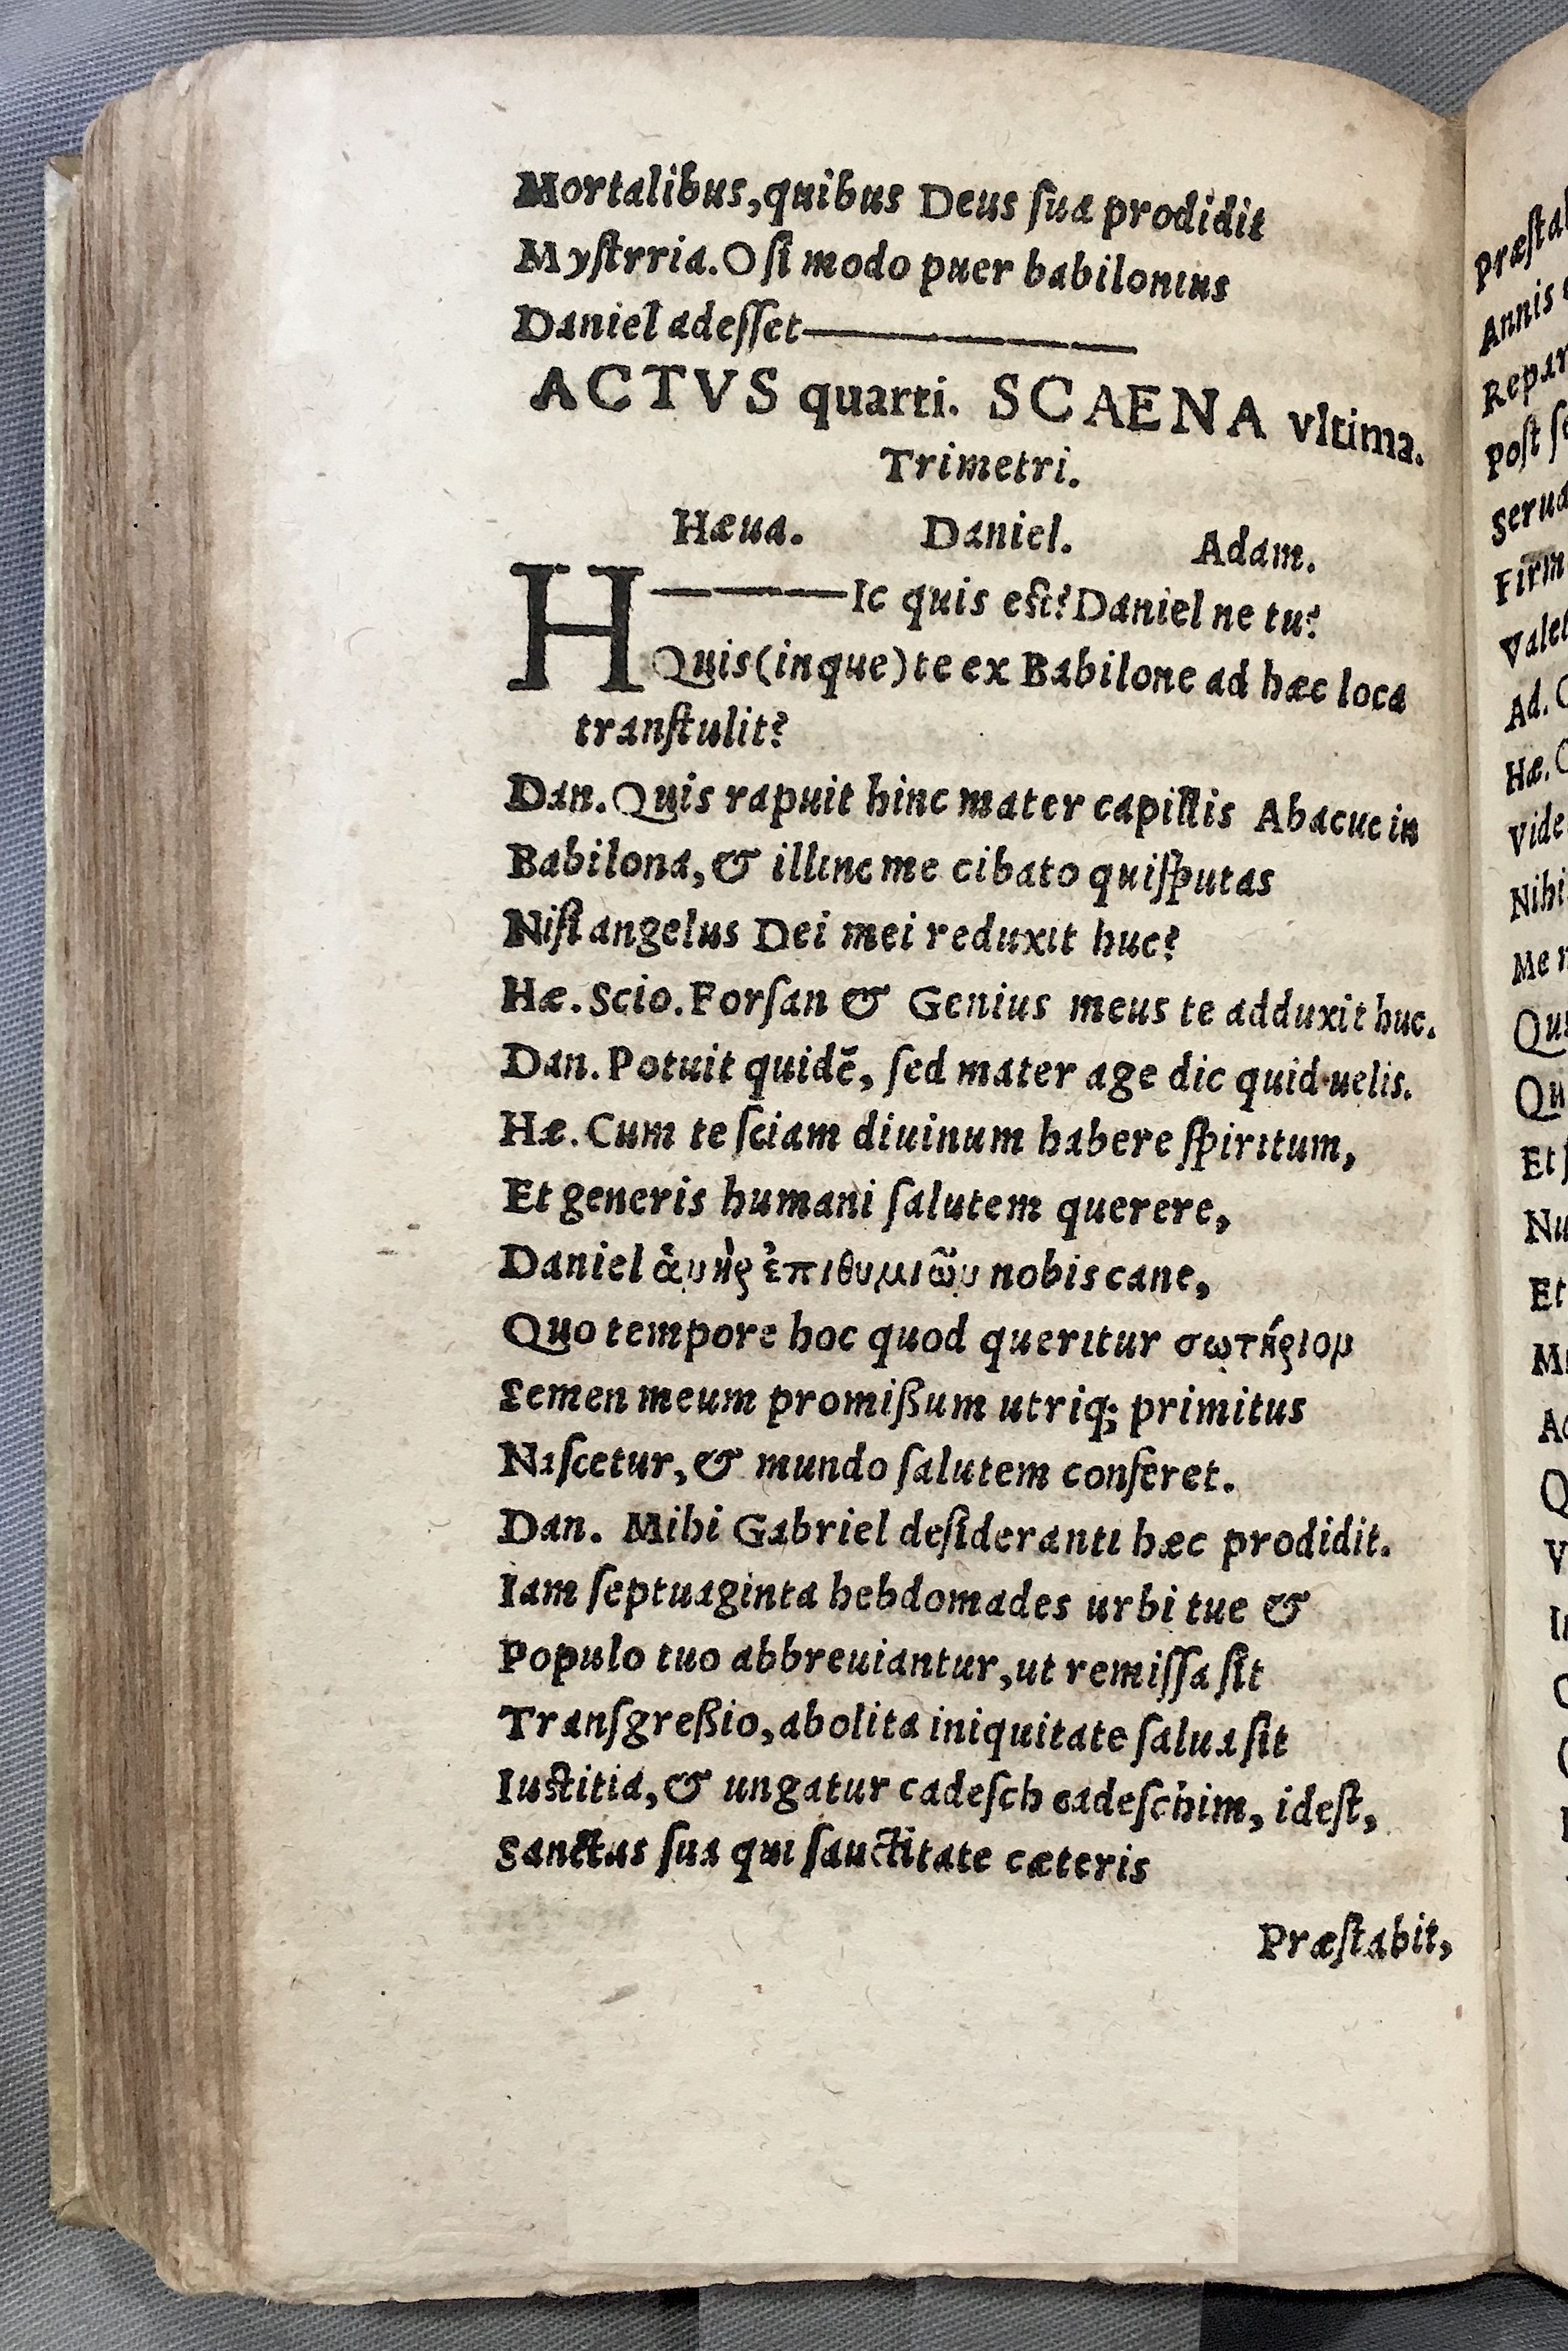 Mortalibus, quibus Deus ſua prodidit
Myſtrria. O ſi modo puer babilonius
Daniel adeſſet—
ACTVS quarti. SCAENA vltima.
Trimetri.
Hæua. Daniel. Adam.
H—Ic quis eſt? Daniel ne tu?
Quis (inque) te ex Babilone ad hæc loca
tranſtulit?
Dan. Quis rapuit hinc mater capillis Abacuc in
Babilona, & illinc me cibato quiſputas
Niſi angelus Dei mei reduxit huc?
Hæ. Scio. Forſan & Genius meus te adduxit huc.
Dan. Potuit quidē, ſed mater age dic quid uelis.
Hæ. Cum te ſciam diuinum habere ſpiritum,
Et generis humani ſalutem querere,
Daniel ἀνὴρ ἐπιθυμιῶν nobis cane,
Quo tempore hoc quod queritur σωτήριον
Semen meum promißum utriq; primitus
Naſcetur, & mundo ſalutem conferet.
Dan. Mihi Gabriel deſideranti hæc prodidit.
Iam ſeptuaginta hebdomades urbi tue &
Populo tuo abbreuiantur, ut remiſſa ſit
Tranſgreßio, abolita iniquitate ſalua ſit
Iuſtitia, & ungatur cadeſch cadeſchim, ideſt,
Sanctus ſua qui ſauctitate cæteris
Præſtabit,
Præſtab
Annis
Repar
Poſt ſe
Serua
Firm
Valet
Ad.
Hæ.
Vide
Nihi
Me
Qu
Qu
Et
Nu
Et